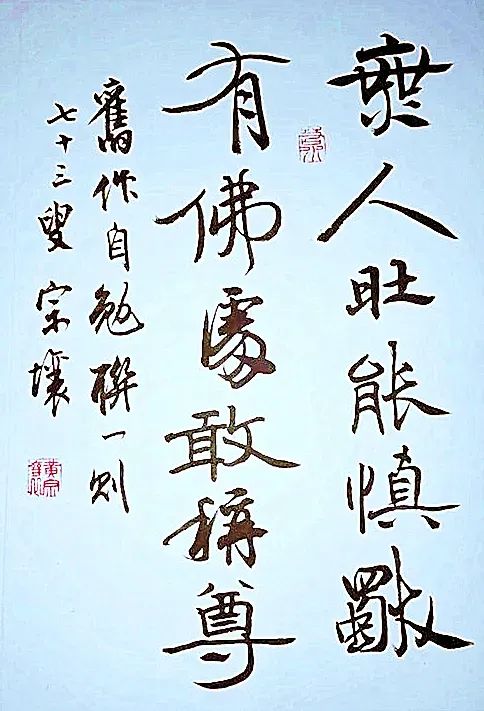 無人時能慎獨
有佛處敢稱尊
舊作自勉聯一則
七十三叟 宗壤